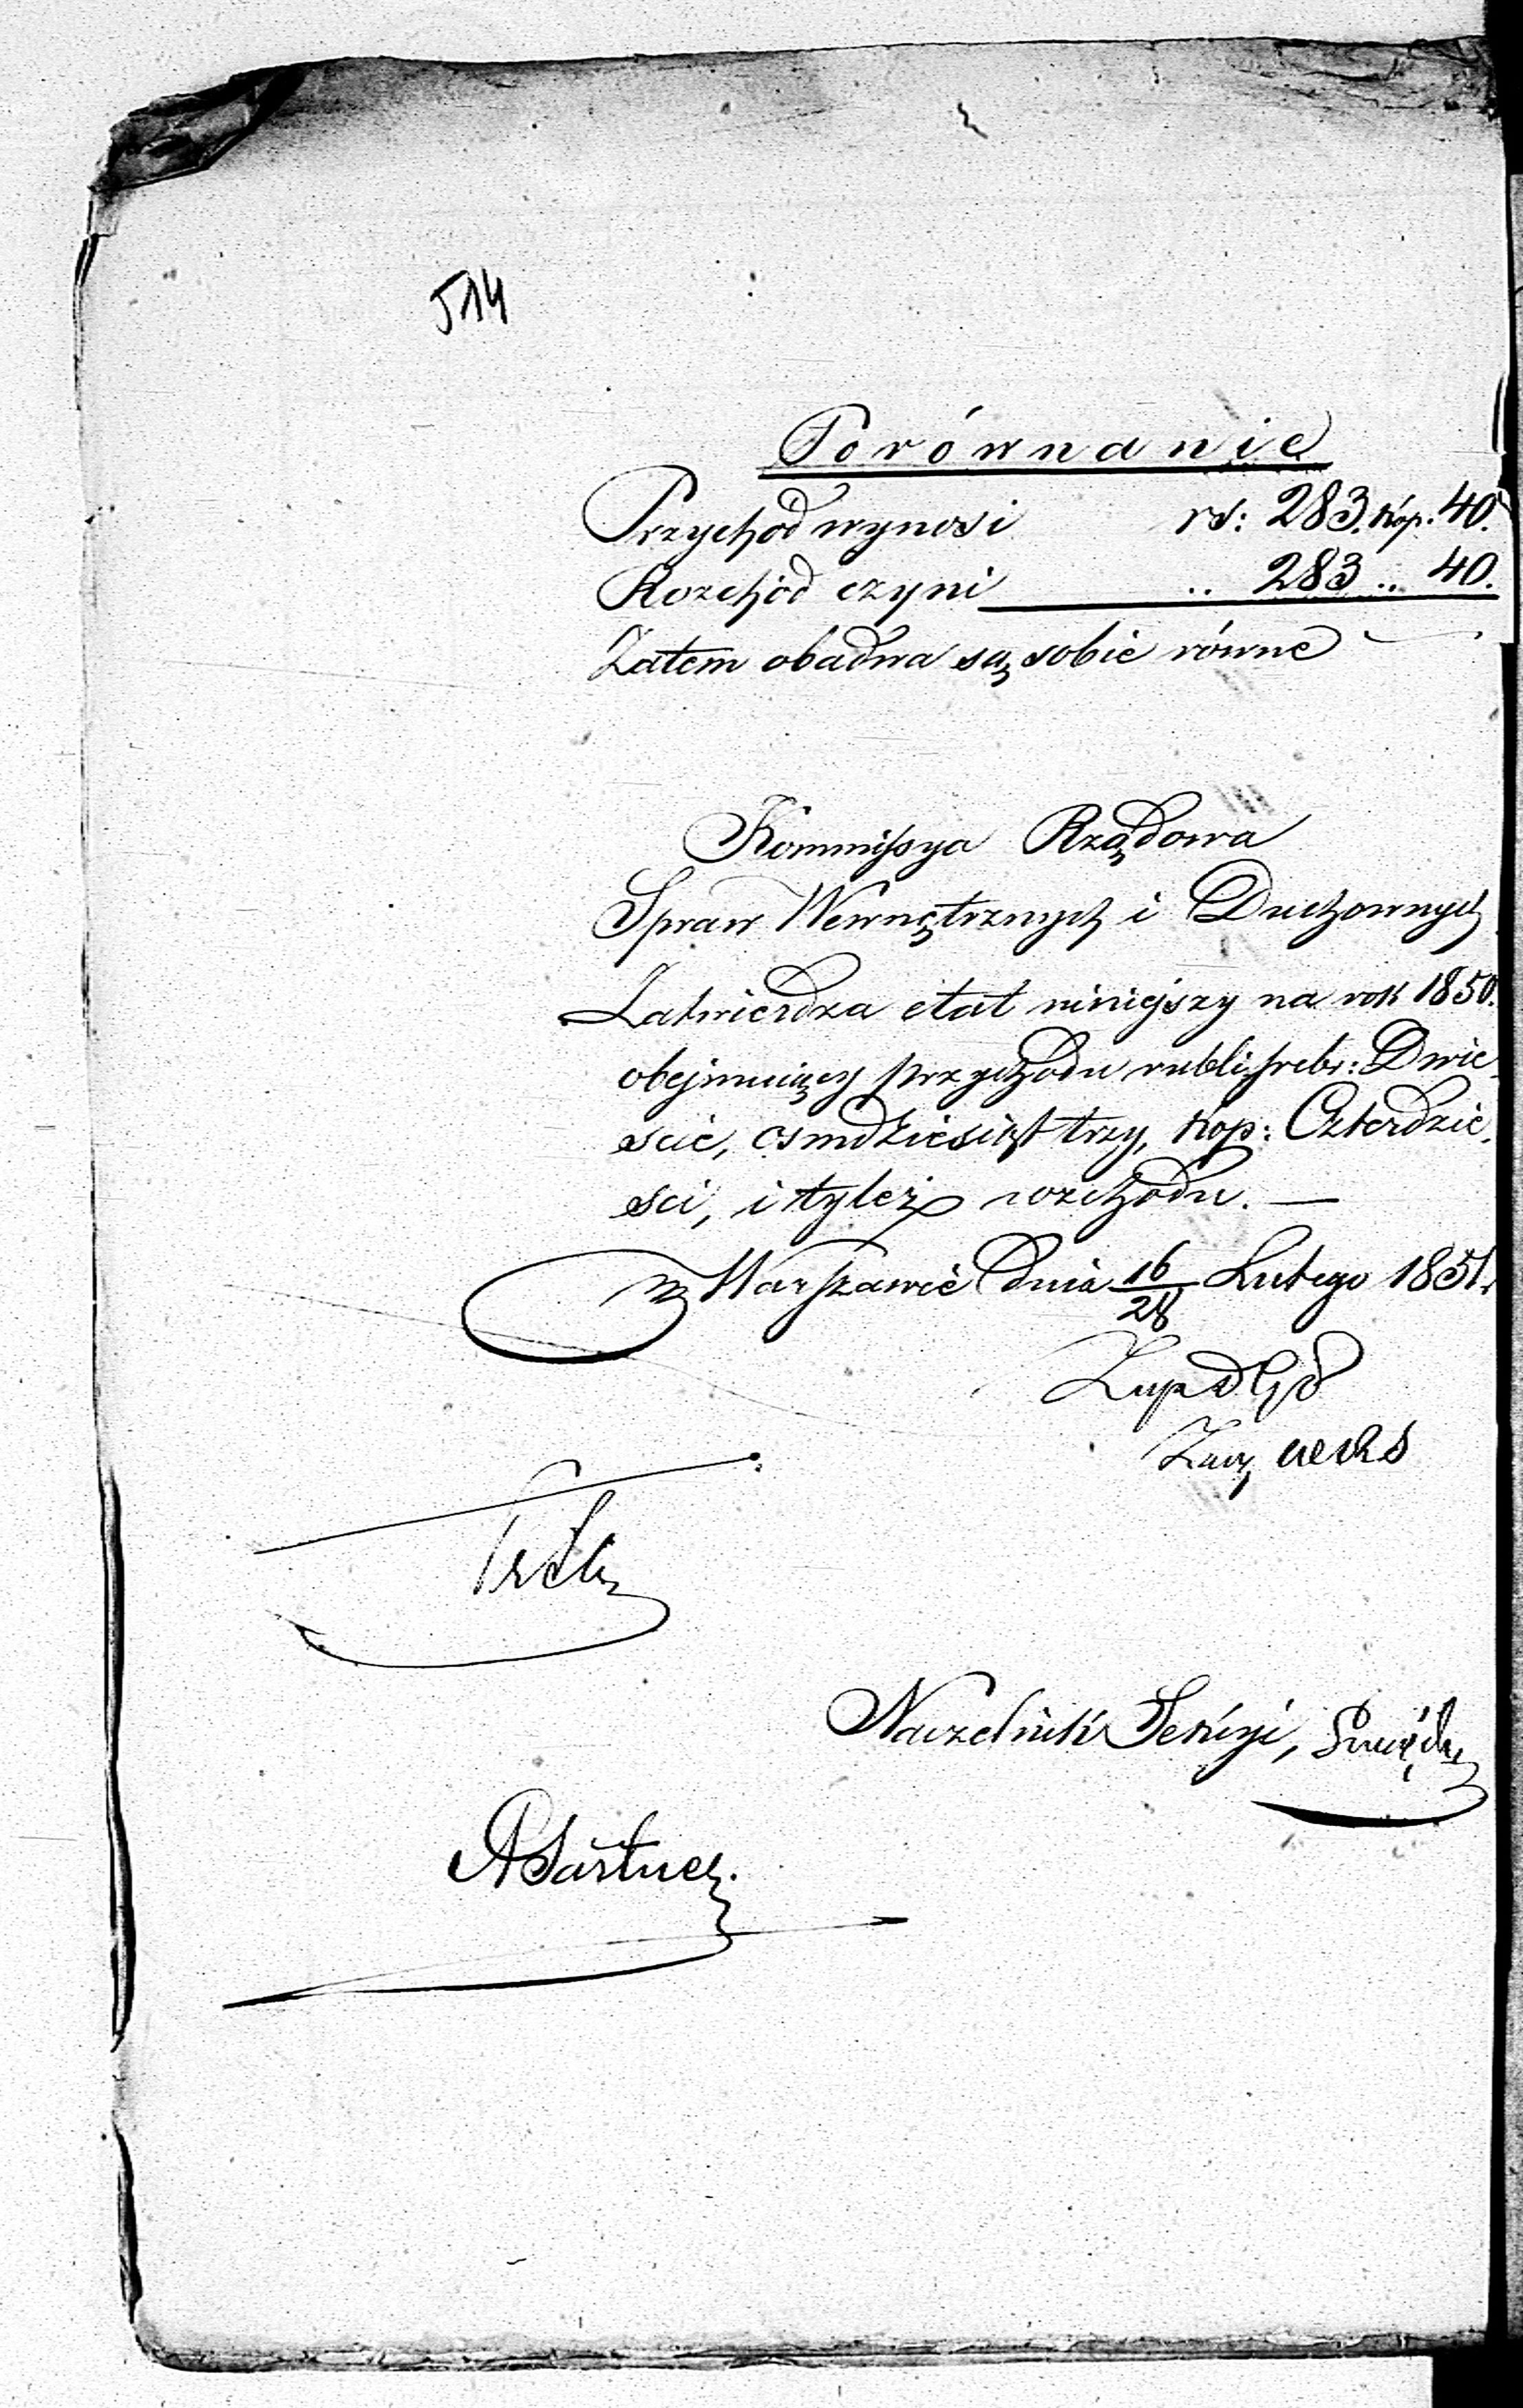 514
Porównanie
Przychód wynosi rs: 283. kop: 40.
Rozchód czyni .. 283 .. 40.
Zatem obadwa są sobie równe
Kommissya Rządowa
Spraw Wewnętrznych i Duchownych
Zatwierdza etat niniejszy na rok 1850.
obejmuiący przychodu rubli srebr: Dwie
scie, osmdziesiąt trzy, kop: Czterdzie,
sci, i tyleż rozchodu. —
w Warszawie dnia 16/28 Lutego 1851.
Naczelnik Sekcyi,